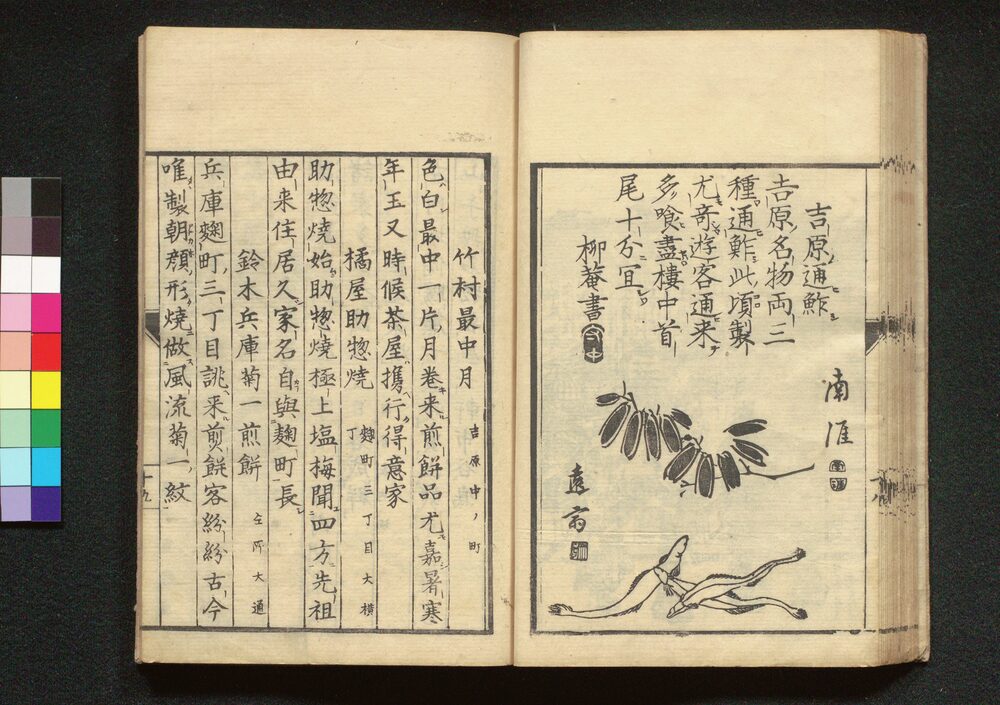 吉原通鮓
吉原名物両三
種通鮓此頃製
尤奇遊客通来
多喰盡樓中首
尾十分宜
柳菴書
南涯
遠斎
竹村最中月 吉原中ノ町
色白最中一片月巻来煎餅品尤嘉暑寒
年玉又時候茶屋攜行得意家
橘屋助惣焼 麴町三丁目大横丁
助惣焼始助惣焼極上塩梅聞四方先祖
由来住居久家名自與麴町長
鈴木兵庫菊一煎餅 仝所大通
兵庫麴町三丁目誂来煎餅客紛紛古今
唯製朝顔形焼做風流菊一紋
十九